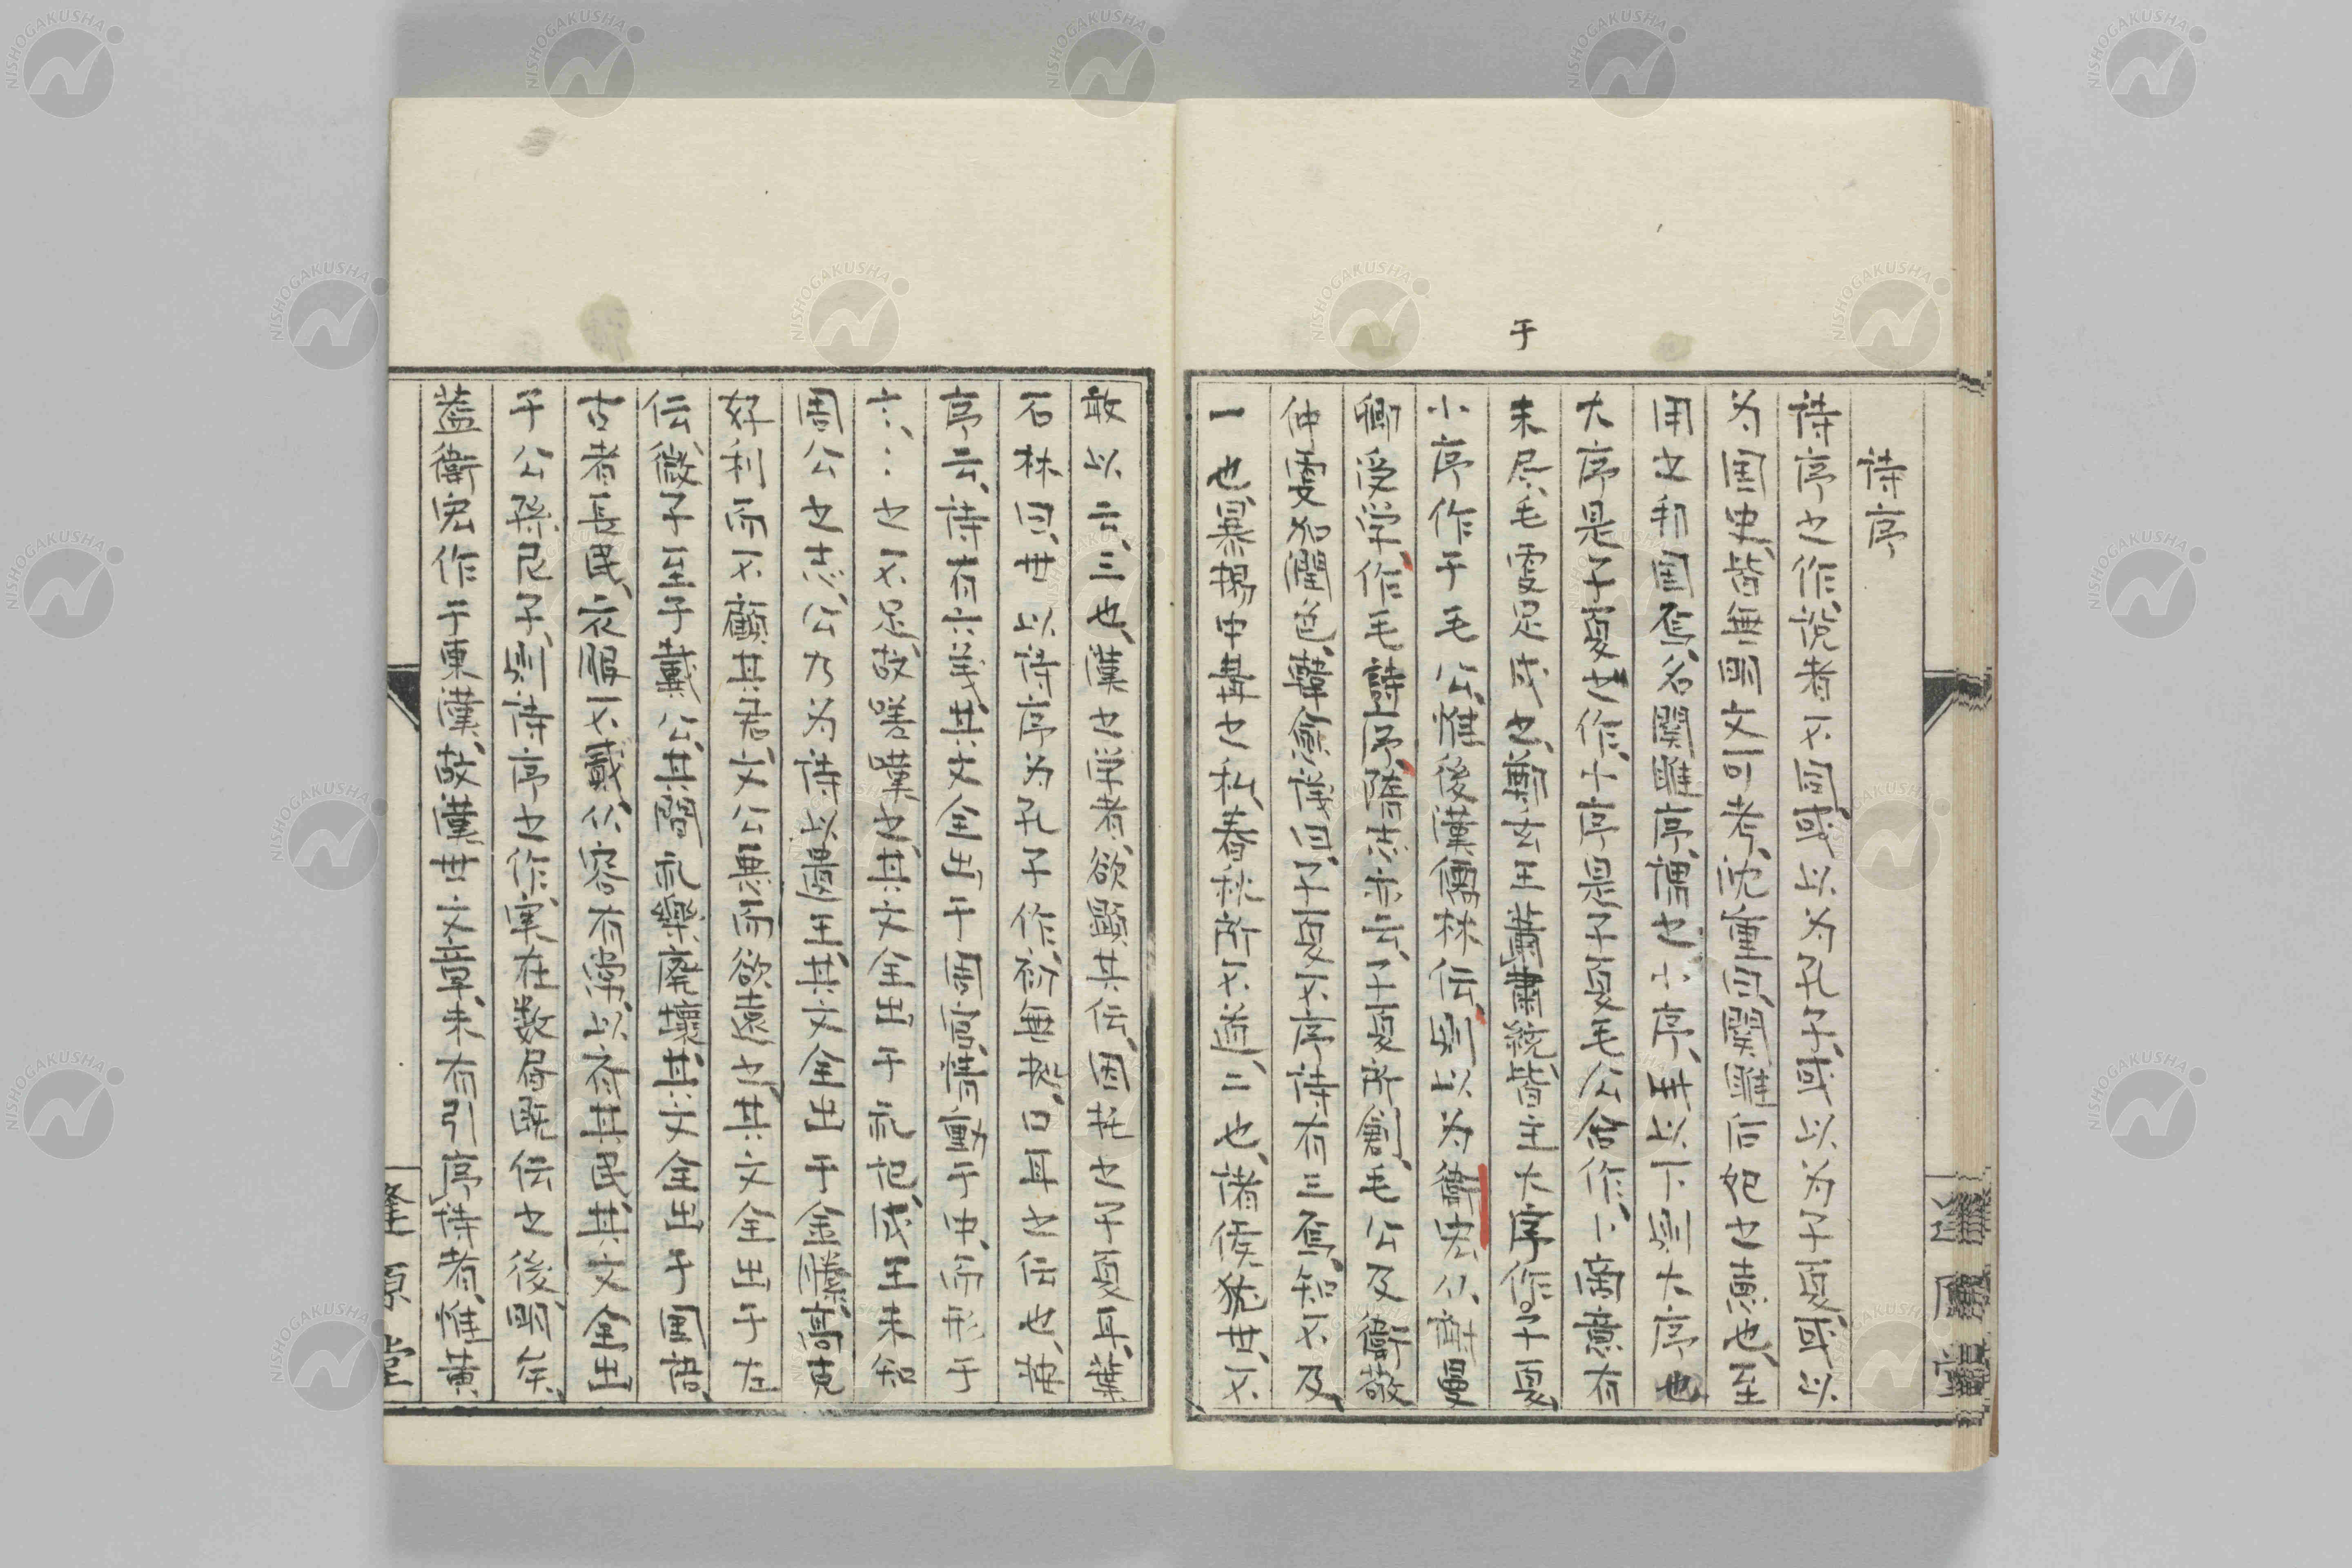 詩序
詩序之作説者不同或以為孔子或以為子夏或以
为国史皆無明文可考沈重曰関雎后妃之意也至
用之邦国焉名関雎序謂之小序此以下則大序也
大序是子夏之作小序是子夏毛公合作卜商意有
未尽毛更足成之鄭玄王肅蕭統皆主大序作子夏
于
小序作于毛公惟後漢儒林伝則以为衛宏从謝曼
卿受学作毛詩序隋志亦云子夏所創毛公及衛敬
仲更加潤色韓愈議曰子夏不序詩有三焉知不及
一也暴揚中冓之私春秋所不道二也諸侯猶世不
敢以云三也漢之学者欲顕其伝因托之子夏耳葉
石林曰世以詩序为孔子作初無拠口耳之伝也葉
序云詩有六義其文全出于周官情動于中而形于
六〻〻之不足故嗟嘆之其文全出于礼記成王未知
周公之志公乃为詩以遺王其文全出于金縢高克
好利而不顧其君文公悪而欲遠之其文全出于左
伝微子至于戴公其間礼楽廃壊其文全出于国語
古者長民衣服不貳从容有常以斉其民其文全出
于公孫尼子則詩序之作実在数層既伝之後明矣
蓋衛宏作于東漢故漢世文章未有引序詩者惟黄